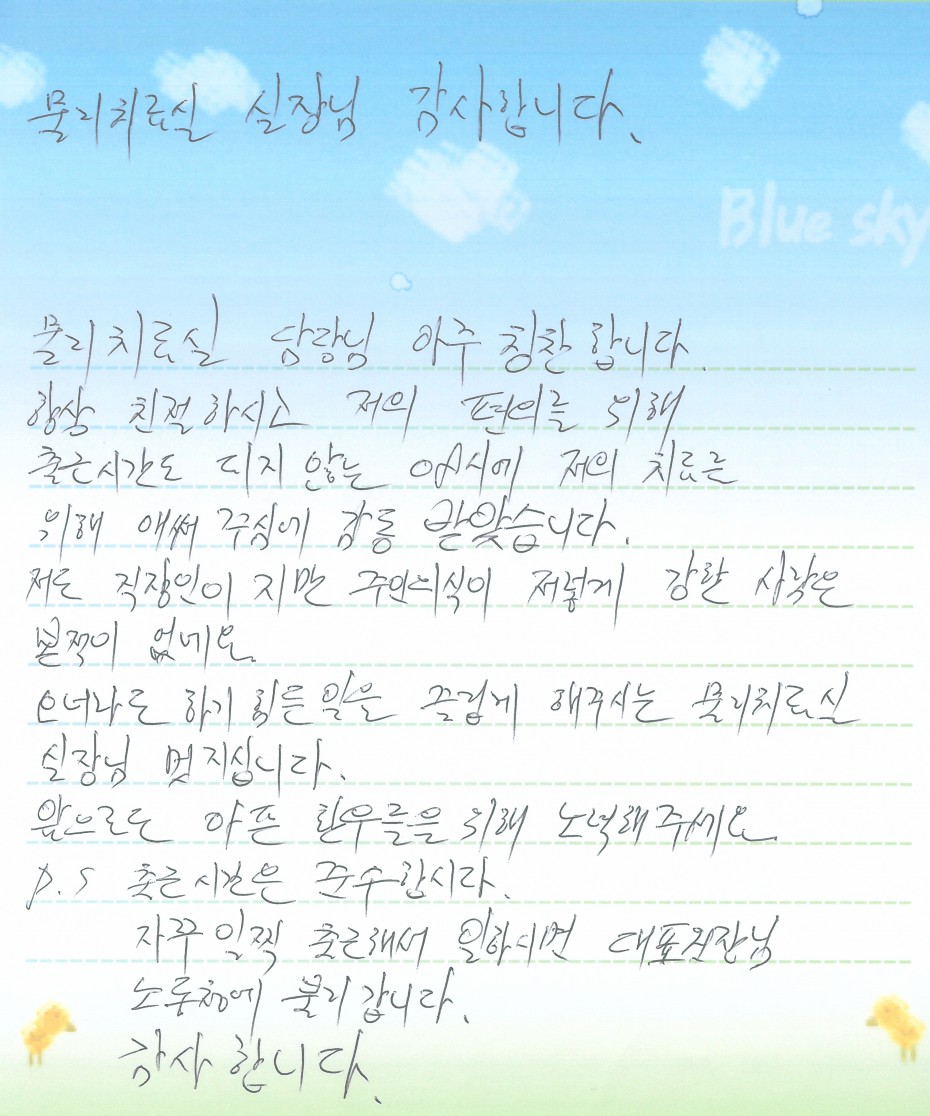 물리치료실 실장님 감사합니다.
Blue sky
물리치료실 담당님 아주 칭찬합니다.
항상 친절하시고 저의 편의를 위해
출근시간도 되지 않는 08시에 저의 치료를
위해 애써 주심에 감동 받았습니다.
저도 직장인이지만 주인의식이 저렇게 강한 사람은
본적이 없네요.
누너나도 하기 힘든일을 즐겁게 해주시는 물리치료실
실장님 멋지십니다.
앞으로도 아픈 환우들을 위해 노력해주세요.
P.S 출근시간은 준수합시다.
자꾸 일찍 출근해서 일하시면 대표원장님
노동청에 불려갑니다.
감사합니다.